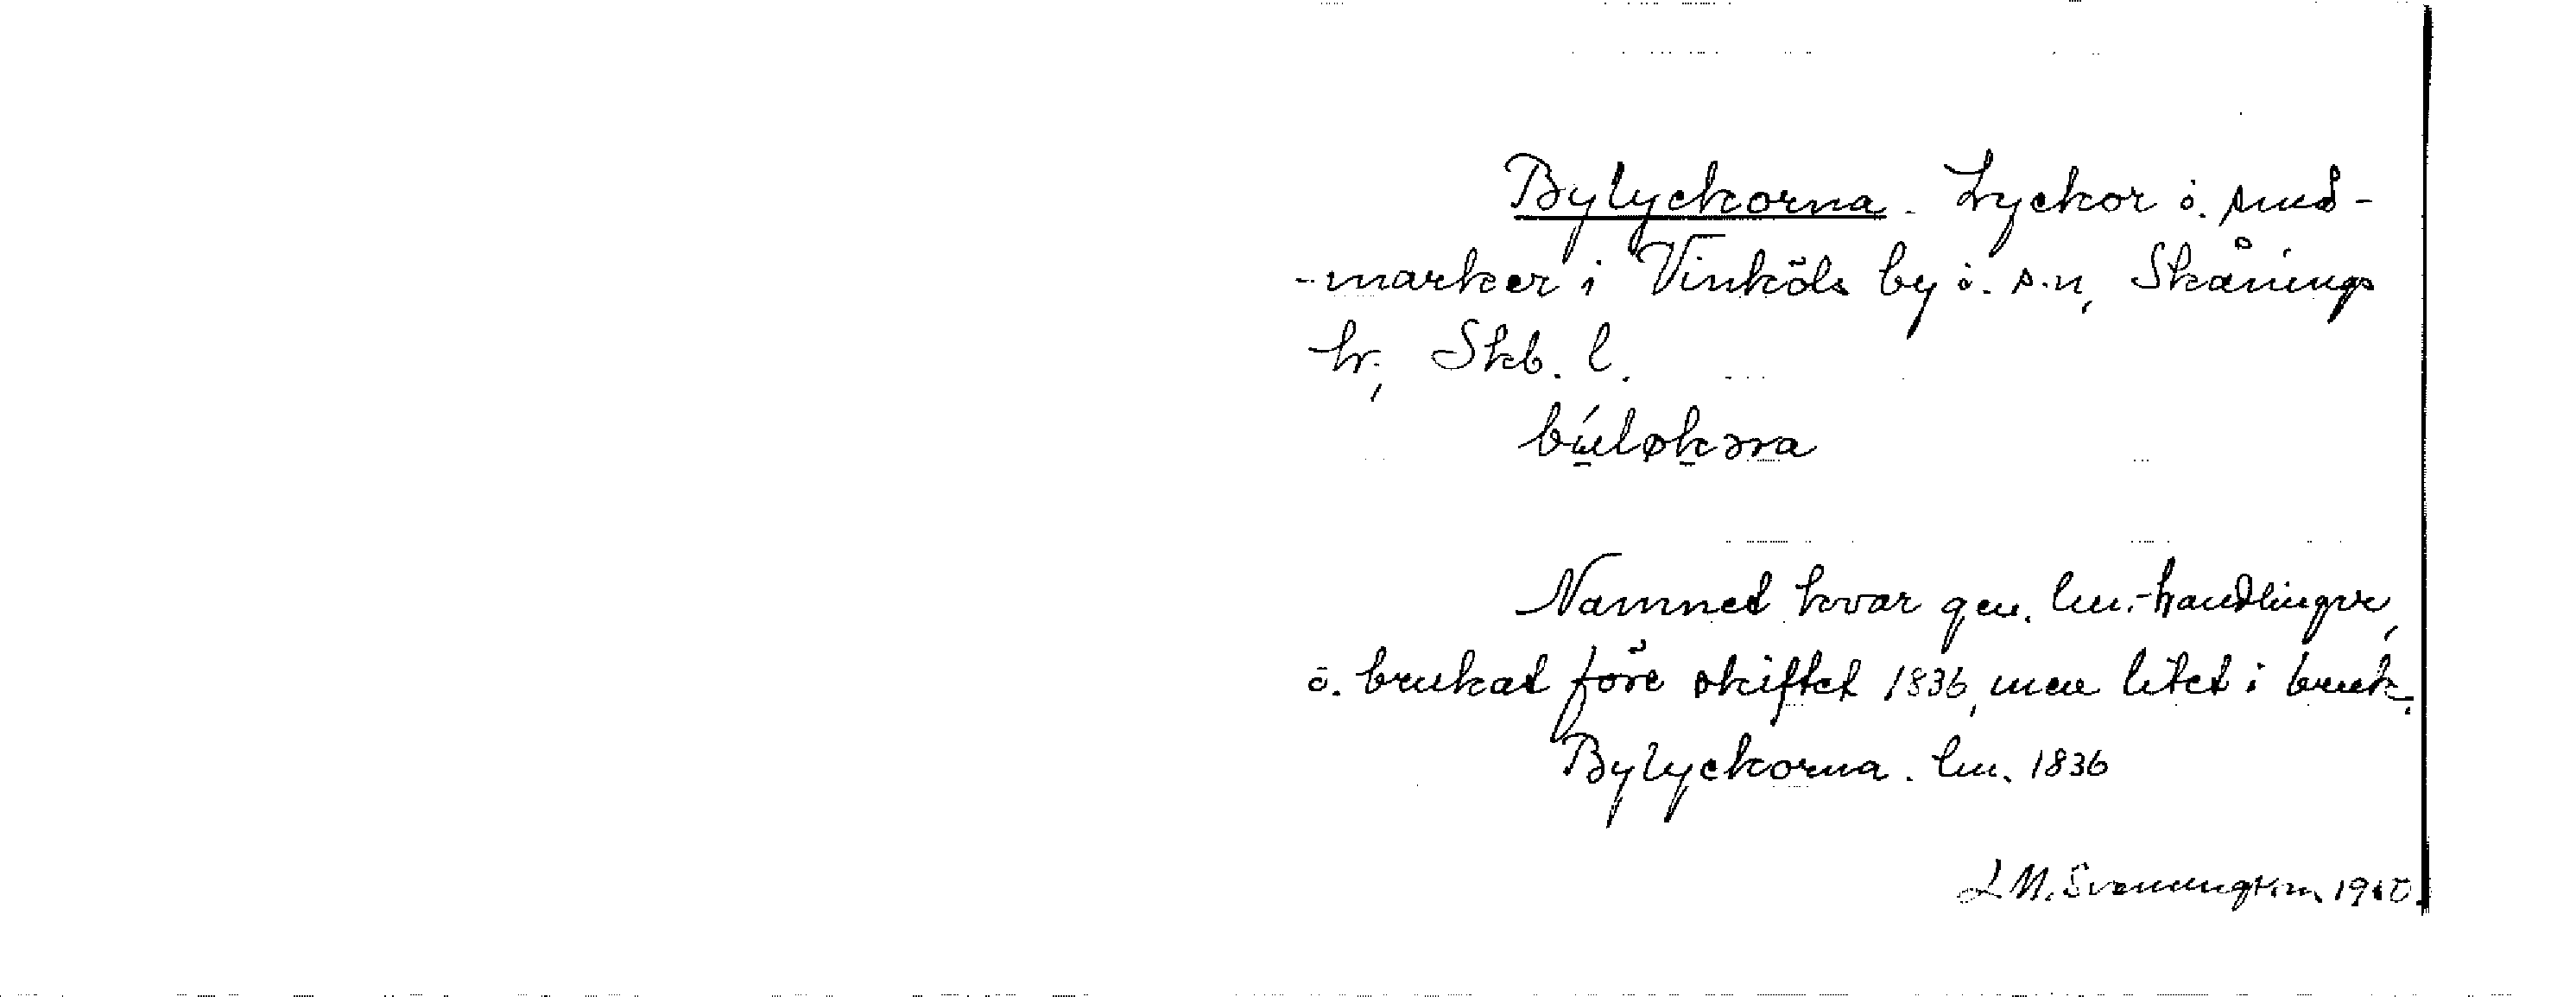 Bylyckorna. Lyckor o. små-
-marker i Vinköls by o. s.n, Skånings
hr, Skb. l.
búløkɔra
Namnet kvar gen. lm.-handlingar,
o. brukat före skiftet 1836, men litet i bruk.
Bylyckorna. lm. 1836
L M. Svenungsson 1910.